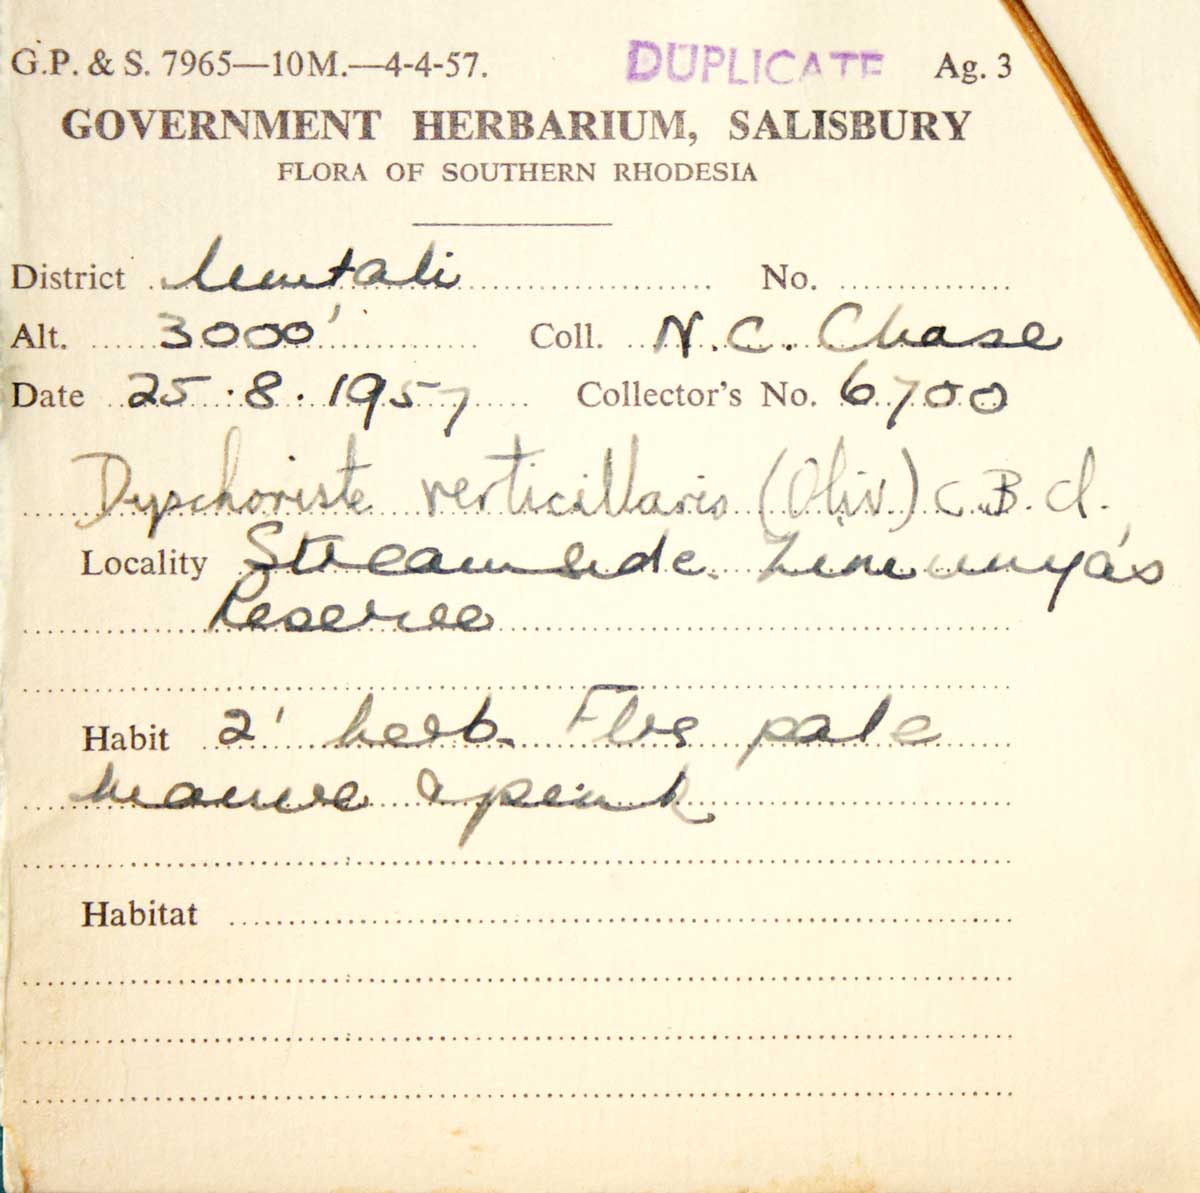 G.P. & S. 7965—10M.—4-4-57. DUPLICATE Ag. 3
GOVERNMENT HERBARIUM, SALISBURY
FLORA OF SOUTHERN RHODESIA
District Umtali No.
Alt. 3000' Coll. N.C. Chase
Date 25.8.1957 Collector's No. 6700
Dyschoriste verticillaris (Oliv.) C.B.Cl.
Locality Streamside. Zimunya's
Reserve
Habit 2' herb. Flrs pale
mauve & pink
Habitat